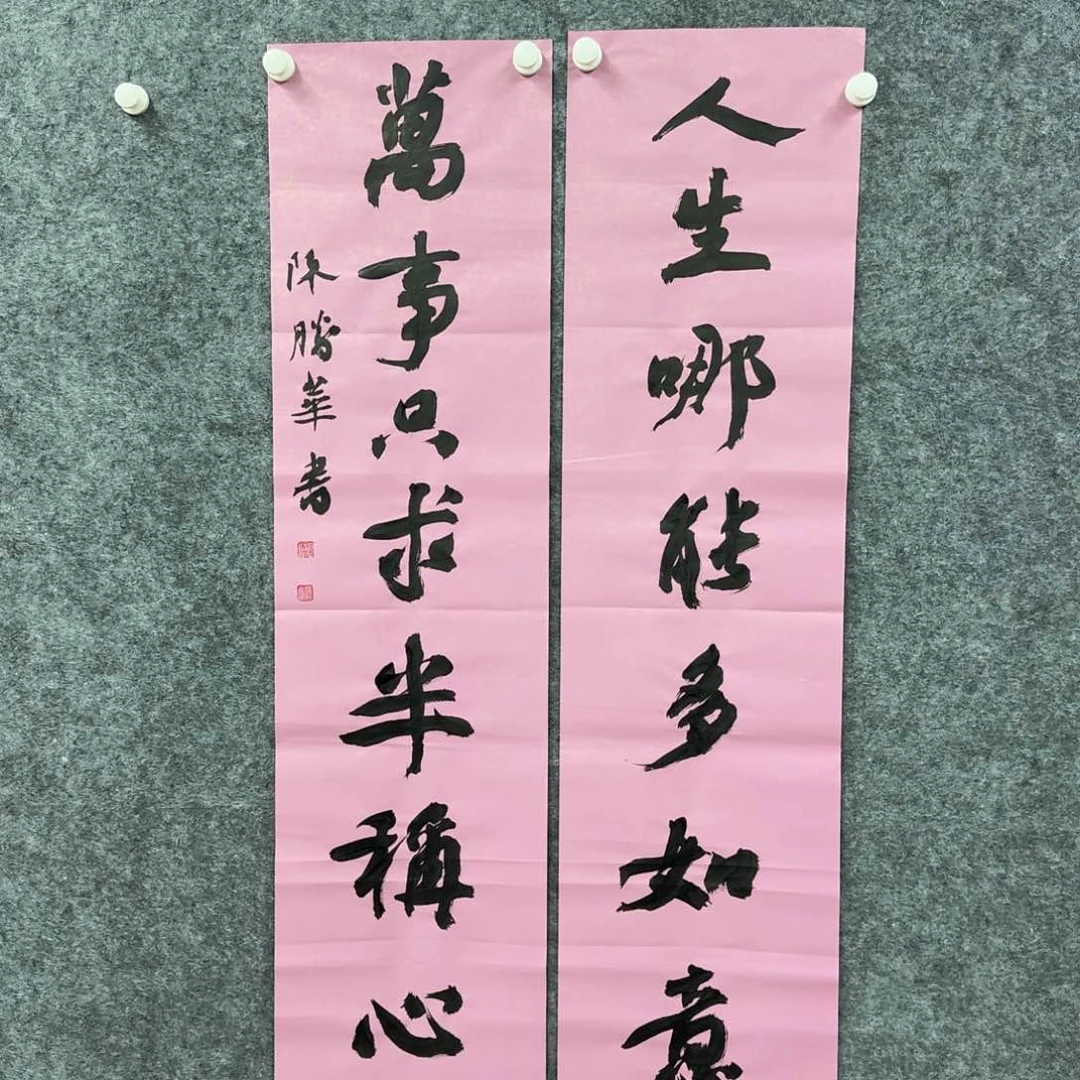 人生哪能多如意
萬事只求半稱心
陳勝華書